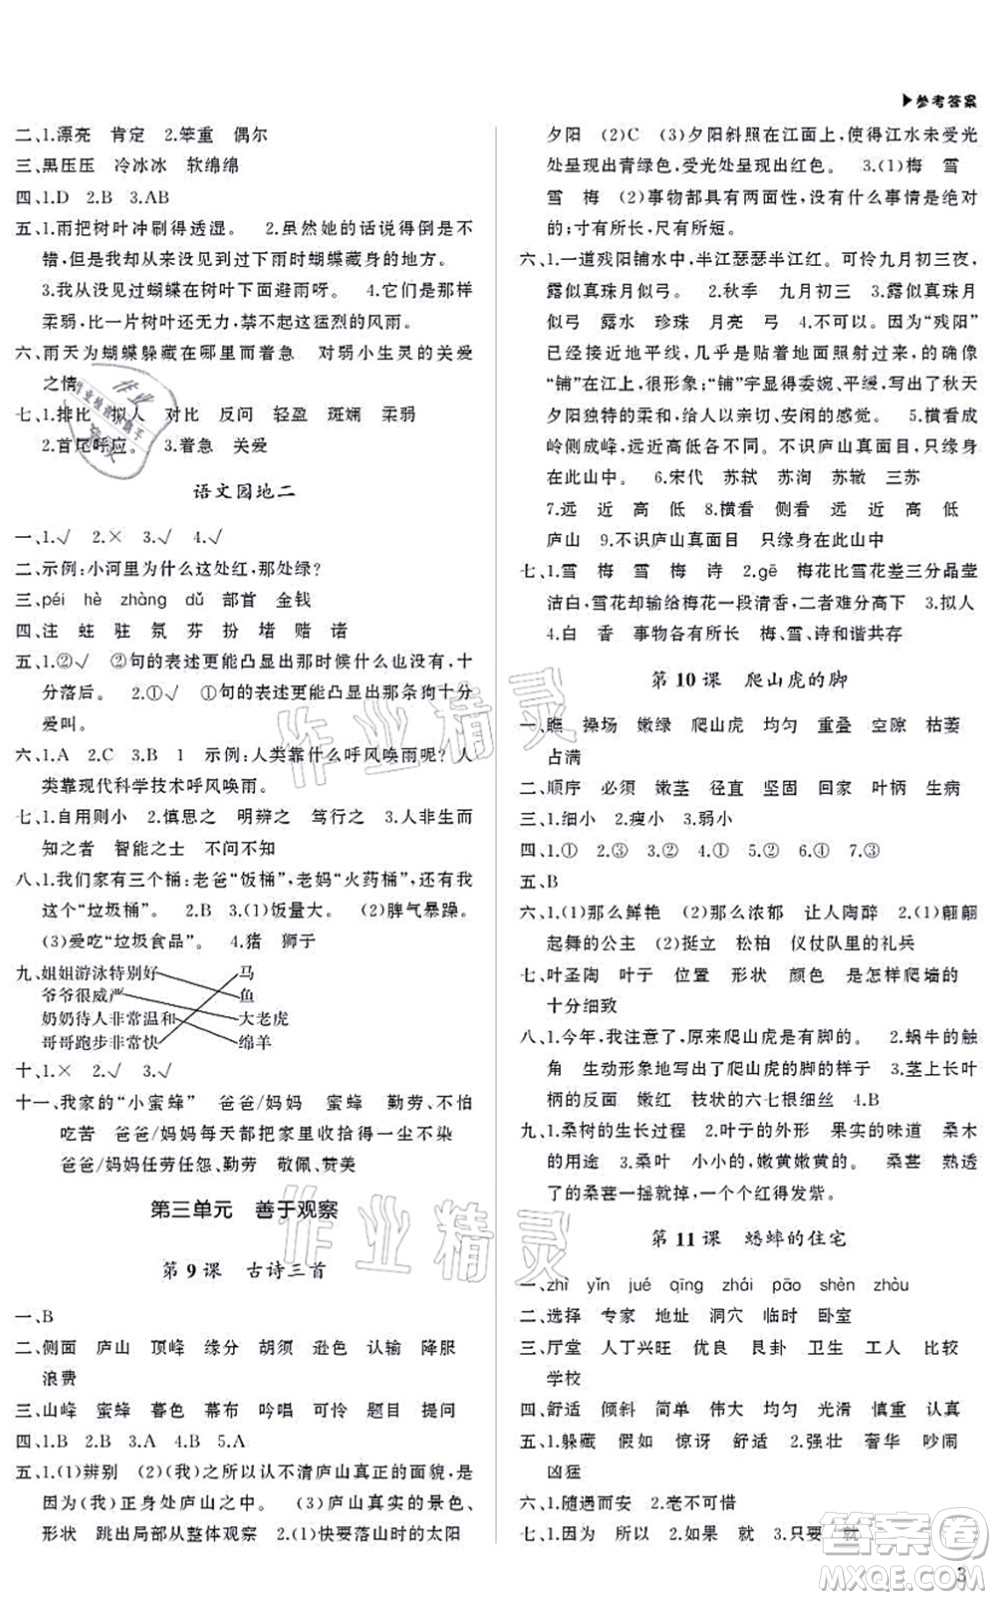 ▶参考答案
二、1.漂亮 肯定 2.笨重 偶尔
三、黑压压 冷冰冰 软绵绵
四、1.D 2.B 3.AB
五、1.雨把树叶冲刷得透湿。 2.虽然她的话说得倒是不
错,但我从来没见到过下雨时蝴蝶藏身的地方。
3.我从没见到过蝴蝶在树叶下面避雨呀。 4.它们是那样
柔弱,比一片树叶还无力,很难经得起这猛烈的风雨。
六、雨天为蝴蝶躲藏在哪里而着急 对弱小生灵的关爱
之情
七、1.排比 拟人 对比 反问 轻盈 斑斓 柔弱
2.首尾呼应。 3.着急 关爱
语文园地二
一、1.√ 2.× 3.√ 4.√
二、示例:小河里为什么这处红,那处绿?
三、péi hè zhàng dǔ 部首 金钱
四、注 蛀 驻 氛 芬 扮 堵 赌 诸
五、1.②√ ②句的表述更能凸显出结束时候什么也没有,十
分落后。 2.①√ ①句的表述更能凸显那条狗十分
爱叫。
六、1.A 2.C 3.B 1 示例:人类靠什么呼风唤雨呢?人
类靠现代科学技术呼风唤雨。
七、1.自用则小 2.慎思之 明辨之 笃行之 3.人非生而
知之者 智能之士 不问不知
八、1.我们家有三个桶:老爸“饭桶”,老妈“火药桶”,还有我
这个“垃圾桶”。 2.B 3.(1)饭量大。 (2)脾气暴躁。
(3)爱吃“垃圾食品”。 4.猪 狮子
九、姐姐游泳特别好 马
爷爷很威严 鱼
奶奶待人非常温和 大老虎
哥哥跑步非常快 绵羊
十、1.× 2.√ 3.√
十一、我家的“小蜜蜂” 爸爸/妈妈 蜜蜂 勤劳、不怕
吃苦 爸爸/妈妈每天都把家里收拾得一尘不染
爸爸/妈妈任劳任怨、勤劳 敬佩、赞美
第三单元 善于观察
第 9 课 古诗三首
一、B
二、侧面 庐山 顶峰 缘分 胡须 逊色 认输 降服
浪费
三、山峰 蜜蜂 暮色 幕布 吟唱 可怜 题目 提问
四、1.B 2.B 3.A 4.B 5.A
五、1.(1)辨别 (2)(我)之所以认不清庐山真正的面貌,是
因为(我)正身处庐山之中。 (3)庐山真实的景色、
形状 跳出局部从整体观察 2.(1)快要落山时的太阳
夕阳 (2)C (3)夕阳斜照在江面上,使得江水未受光
处呈现出青绿色,受光处呈现出红色。 3.(1)梅 雪
雪 梅 (2)事物都有两面性,没有什么是绝对
的;寸有所长,尺有所短。
六、1.一道残阳铺水中,半江瑟瑟半江红。可怜九月初三夜,
露似真珠月似弓。 2.秋季 九月初三 3.露似真珠月
似弓 露水 珍珠 月亮 弓 4.不可以。因为“残阳”
已经接近地平线,几乎是贴着地面照射过来的,的确像
“铺”在江上,很形象;“铺”字显得委婉、平缓,写出了秋天
夕阳独特的柔和,给人以亲切、安闲的感觉。 5.横看成
岭侧成峰,远近高低各不同。不识庐山真面目,只缘身
在此山中。 6.宋代 苏轼 苏洵 苏辙 三苏
7.远 近 高 低 8.横看 侧看 远 近 高 低
庐山 9.不识庐山真面目 只缘身在此山中
七、1.雪 梅 雪 梅 诗 2.gē 梅花比雪花差三分晶莹
洁白,雪花却输给梅花一段清香,二者难分高下 3.拟人
4.白 香 事物各有所长 梅、雪、诗和谐共存
第 10 课 爬山虎的脚
一、瞧 操场 嫩绿 爬山虎 均匀 重叠 空隙 枯萎
占满
二、顺序 必须 嫩茎 触角 坚固 回家 叶柄 生病
三、1.细小 2.瘦小 3.弱小
四、1.① 2.③ 3.② 4.① 5.② 6.② 7.③
五、B
六、1.(1)那么鲜艳 (2)那么浓郁 让人陶醉 2.(1)翩翩
起舞的公主 (2)挺立 松柏 仪仗队里的礼兵
七、叶圣陶 叶子 位置 形状 颜色 是怎样爬墙的
十分细致
八、1.今年,我注意了,原来爬山虎是有脚的。 2.蜗牛的触
角 生动形象地写出了爬山虎的脚的样子 3.叶柄
的反面 嫩红 枝状的六七根细丝 4.B
九、1.桑树的生长过程 2.叶子的外形 果实的味道 桑木
的用途 3.桑叶 小小的,嫩黄嫩黄的。 桑葚 熟透
了的桑葚一摇就掉,一个个红得发紫。
第 11 课 蟋蟀的住宅
一、zhì yǐn jué qīng zhái pāo shèn zhòu
二、选择 专家 地址 洞穴 临时 卧室
三、厅堂 人丁兴旺 优良 艮卦 卫生 工人 比较
学校
四、舒适 倾斜 简单 伟大 均匀 光滑 慎重 认真
五、1.躲藏 假如 惊讶 舒适 2.强壮 奢华 吵闹
凶猛
六、1.随遇而安 2.毫不可惜
七、1.因为 所以 2.如果 就 3.只要 就
3
作业精灵
作业精灵
答案圈
MXQE.COM